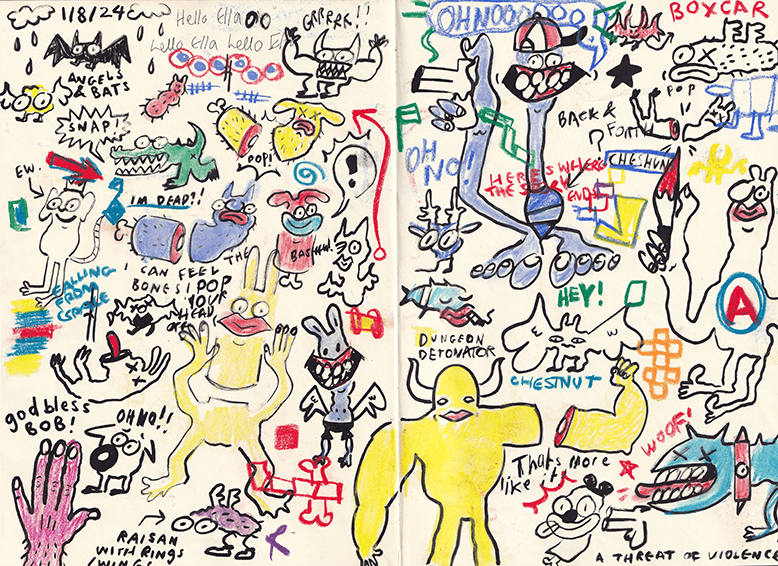 1/8/24
Hello Ella
Hello Ella Hello E
GRRRRR!!
ANGELS
& BATS
SNAP!
POP!
!
EW.
IM DEAD?!
THE
BASHFUL!
I CAN FEEL
BONES!
I POP
YOUR
HEAD
OFF
FALLING
FROM
CRADLE
god bless
BOB!
OH NO!!
RAISAN
WITH RINGS
(WING!
OH NOOOOOOO
BOXCAR
POP
BACK &
FORTH
?
CHESHUN
OH
NO!
HERE'S WHERE
THE STORY
ENDS
HEY!
A
DUNGEON
DETONATOR
CHESTNUT
WOOF!
Thats more
like it
A THREAT OF VIOLENCE